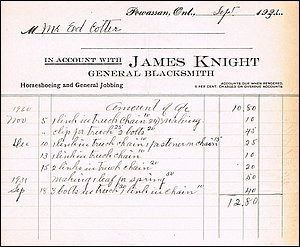 Powassan, Ont., Sept 192
M Mr. Ed Cotter
IN ACCOUNT WITH JAMES KNIGHT
GENERAL BLACKSMITH
Horseshoeing and General Jobbing
ACCOUNTS DUE WHEN RENDERED.
6 PER CENT. CHARGED ON OVERDUE ACCOUNTS
1920 Amount of a/c 10.80
Nov 5 1 link in truck chain 10 making 45
" clip for truck 2 bolts 20 45
Dec 10 1 link in truck chain 10 fastener in chain 15 25
" 13 1 link in truck chain 10
" 15 2 links in truck chain 20
1921 " 11 making 1 leaf for spring 50
Sep 18 3 bolts in truck 1 link in chain 10 40
12.80